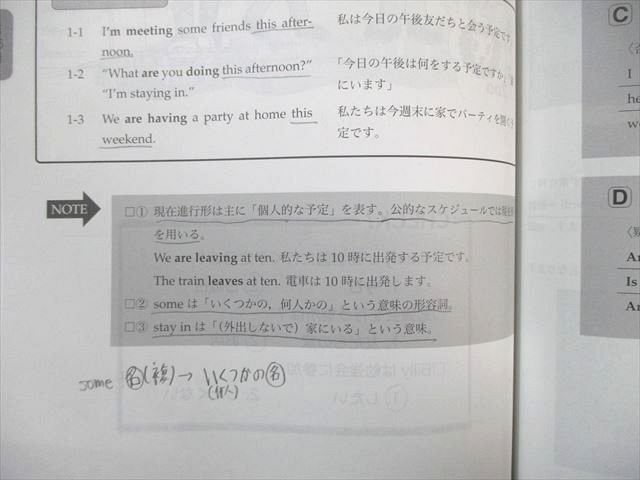 1-1 I'm meeting some friends this after-
noon.
私は今日の午後友だちと会う予定です
1-2 "What are you doing this afternoon?"
"I'm staying in."
「今日の午後は何をする予定ですか
にいます」
1-3 We are having a party at home this
weekend.
私たちは今週末に家でパーティを開く
定です。
NOTE
□① 現在進行形は主に「個人的な予定」を表す。公的なスケジュールでは現在
を用いる。
We are leaving at ten. 私たちは 10 時に出発する予定です。
The train leaves at ten. 電車は 10 時に出発します。
□② some は「いくつかの，何人かの」という意味の形容詞。
□③ stay in は「（外出しないで）家にいる」という意味。
some 名(複) → いくつかの名
(何人)
C
I
he
we
D
An
Is
An